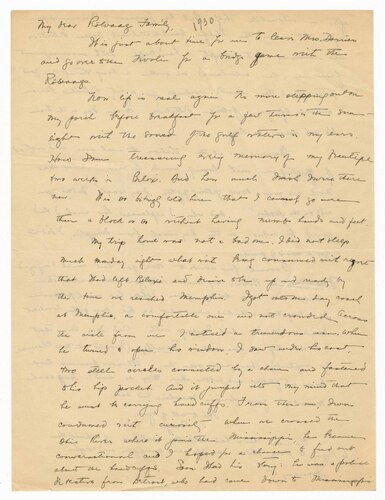 My dear Rolvaag Family, 1930
It is just about time for me to leave Mrs. Davies
and go over to the Tivoli for a bridge game with the
Rolvaags.
Now life is real again. No more stepping out on
my porch before breakfast for a few turns in the sun-
light with the sound of the gulf waters in my ears.
How I am treasuring every memory of my beautiful
two weeks in Biloxi. And how much I wish I were there
now. It is so bitingly cold here that I cannot go more
than a block or so without having numb hands and feet.
My trip home was not a bad one. I did not sleep
much Monday night what with being consumed with regret
that I had left Biloxi and desire to be up and ready by
the time we reached Memphis. I got into the day coach
at Memphis, a comfortable one and not crowded. Across
the aisle from me I noticed a tremendous man, when
he turned to open his window, I saw under his coat,
two steel circles connected by a chain and fastened
to his hip pocket. And it jumped into my mind that
he must be carrying handcuffs. From then on, I was
consumed with curiosity. When we crossed the
Ohio River where it joins the Mississippi, he became
conversational and I hoped for a chance to find out
about the handcuffs. Soon I had his story: he was a police
detective from Detroit, who had come down to Mississippi